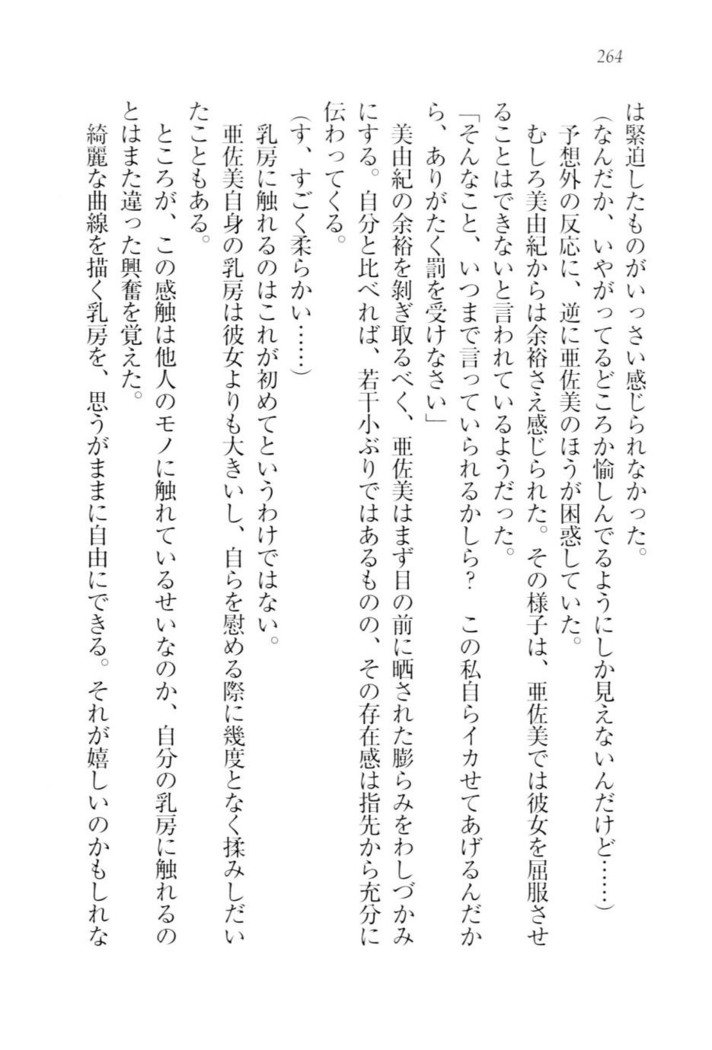 264
は緊迫したものがいっさい感じられなかった。
（なんだか、いやがってるどころか愉しんでるようにしか見えないんだけど……）
予想外の反応に、逆に亜佐美のほうが困惑していた。
むしろ美由紀からは余裕さえ感じられた。その様子は、亜佐美では彼女を屈服させ
ることはできないと言われているようだった。
「そんなこと、いつまで言っていられるかしら？　この私自らイカせてあげるんだか
ら、ありがたく罰を受けなさい」
美由紀の余裕を剝ぎ取るべく、亜佐美はまず目の前に晒された膨らみをわしづかみ
にする。自分と比べれば、若干小ぶりではあるものの、その存在感は指先から充分に
伝わってくる。
（す、すごく柔らかい……）
乳房に触れるのはこれが初めてというわけではない。
亜佐美自身の乳房は彼女よりも大きいし、自らを慰める際に幾度となく揉みしだい
たこともある。
ところが、この感触は他人のモノに触れているせいなのか、自分の乳房に触れるの
とはまた違った興奮を覚えた。
綺麗な曲線を描く乳房を、思うがままに自由にできる。それが嬉しいのかもしれな